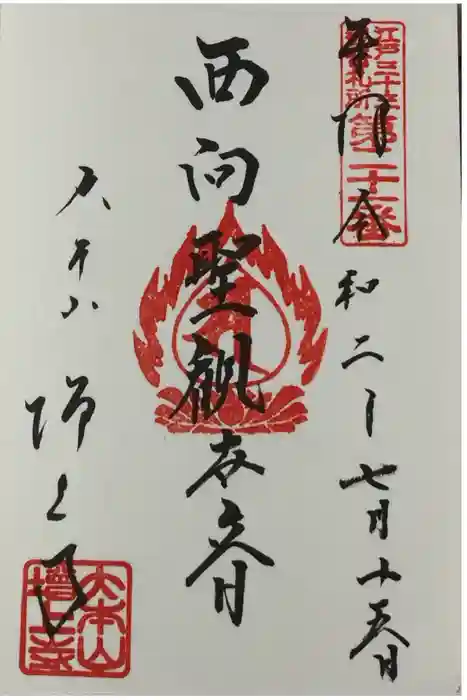 江戸三十三
観音札所
第二十一番
奉拝 令和二年七月十五日
西向聖観世音
大本山 増上寺
大本山
増上寺